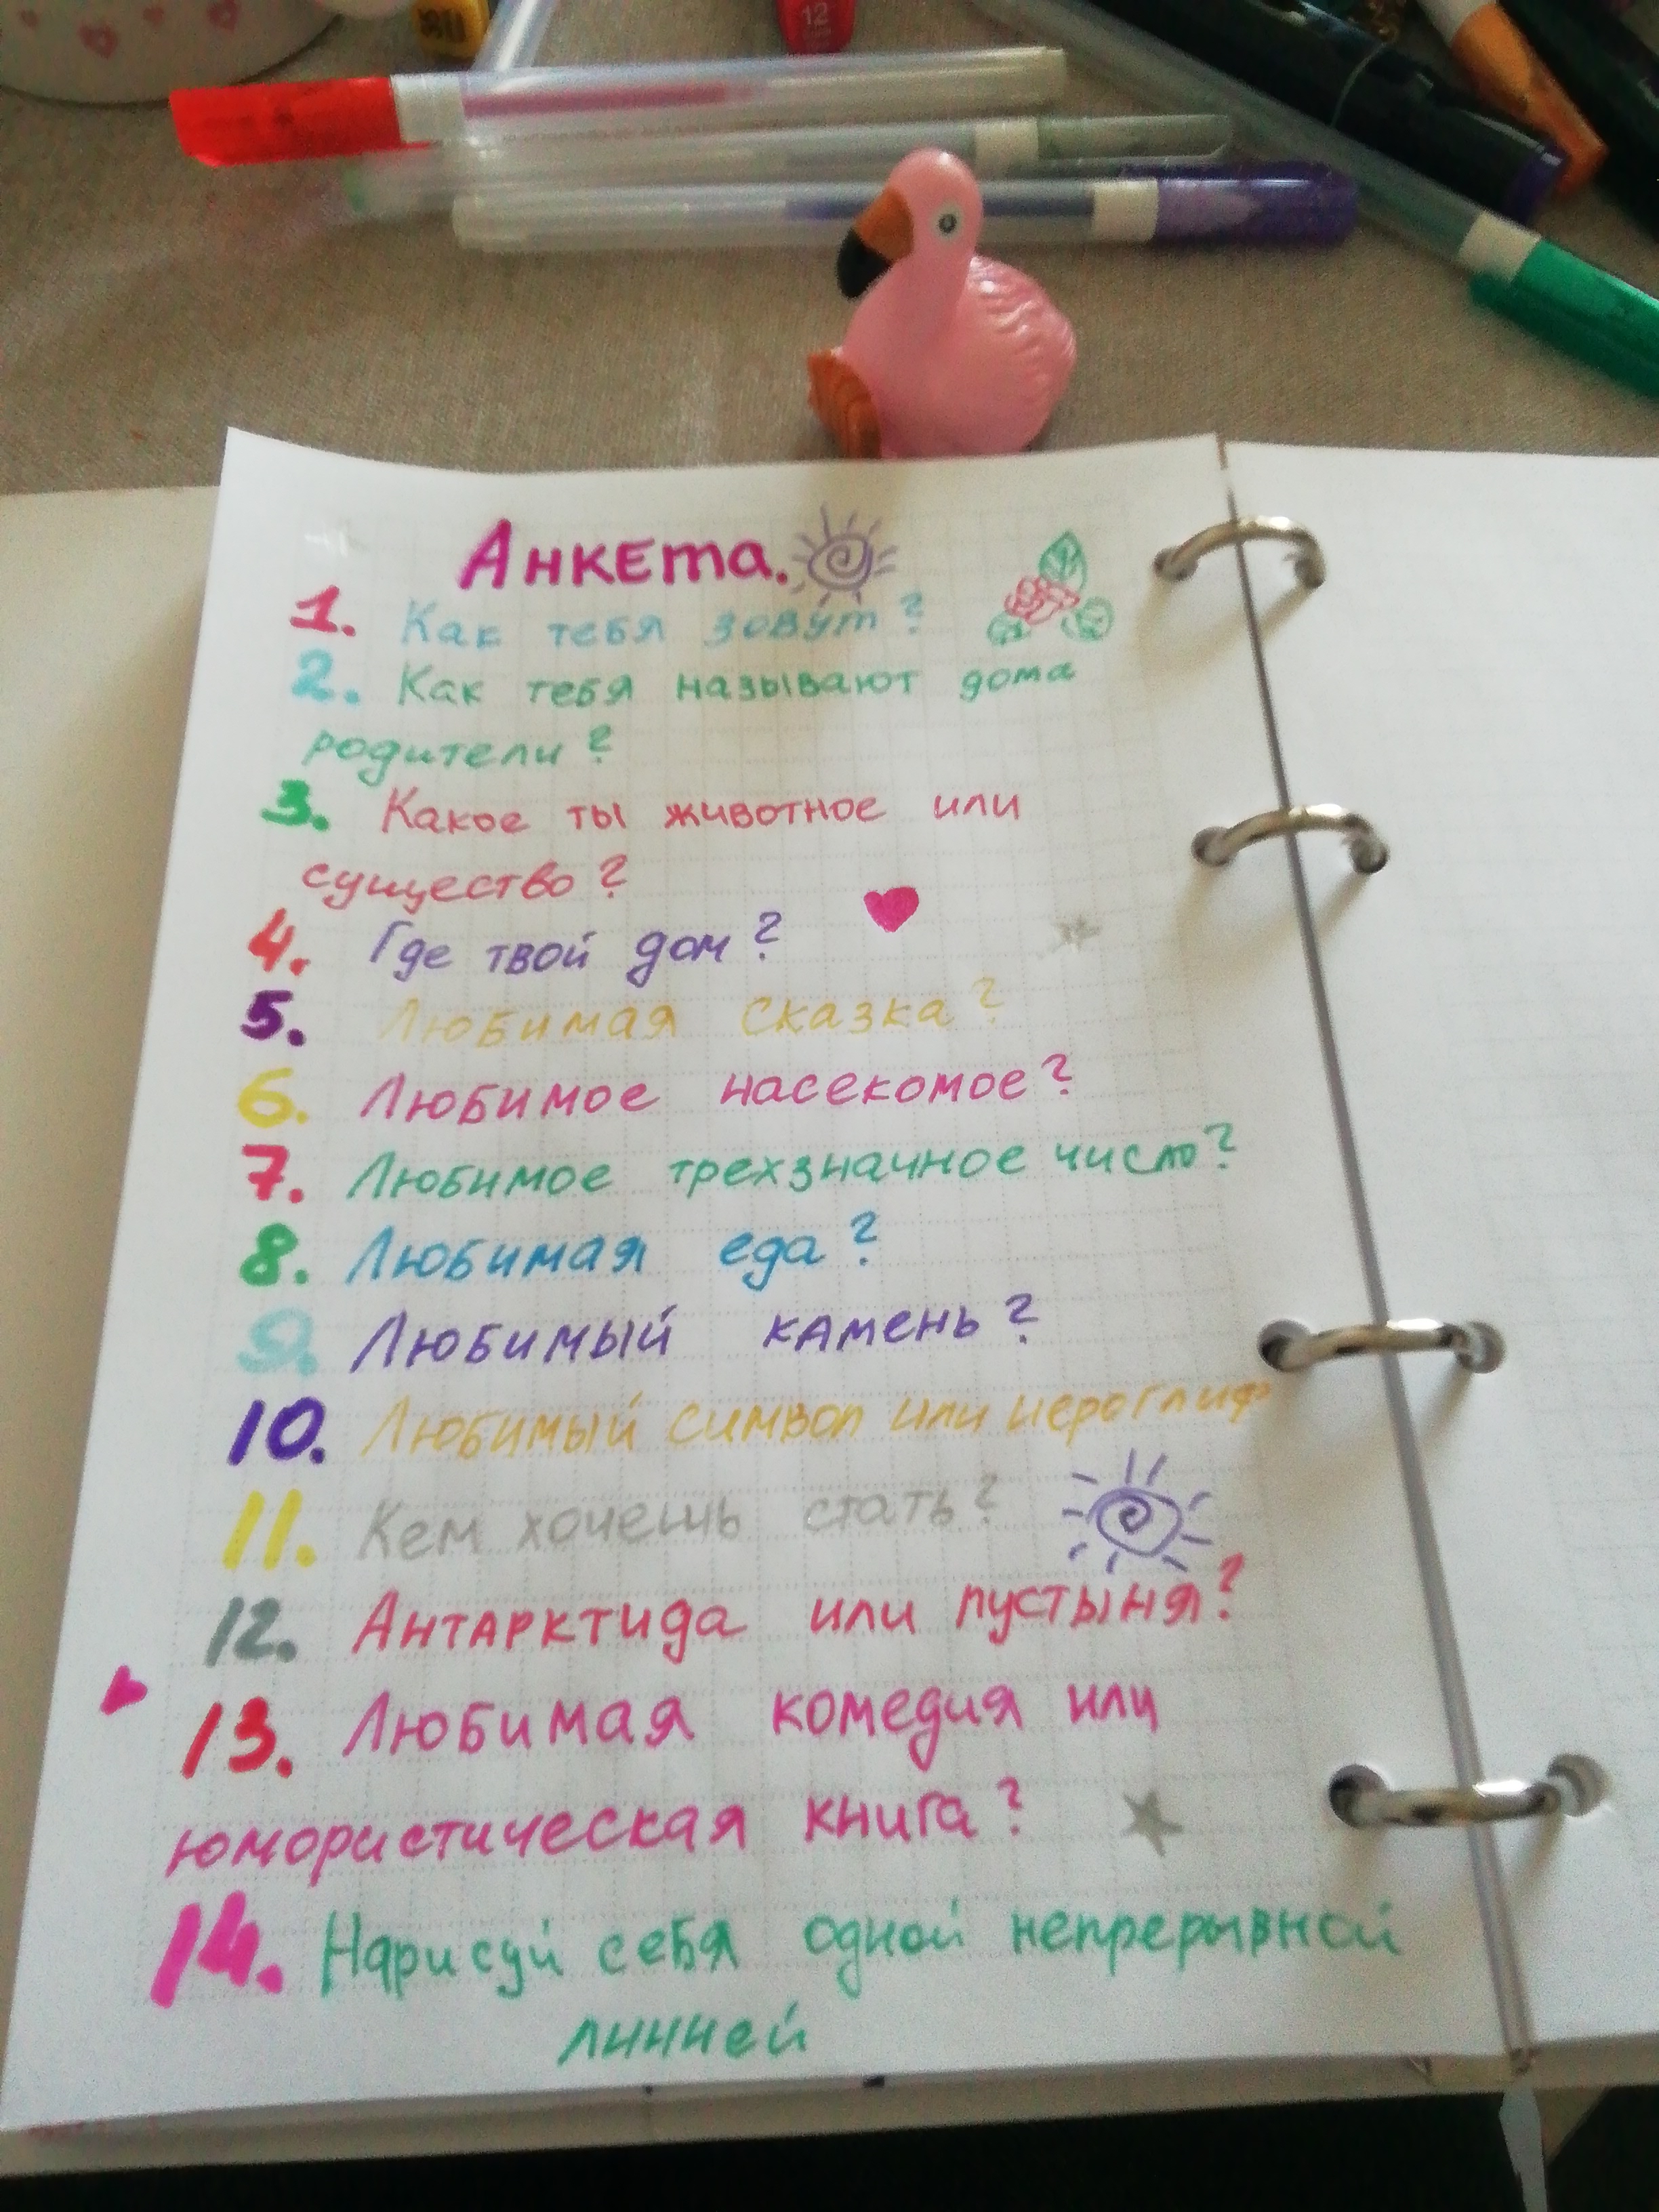 12
Анкета.
1. Как тебя зовут?
2. Как тебя называют дома
родители?
3. Какое ты животное или
существо?
4. Где твой дом?
5. Любимая сказка?
6. Любимое насекомое?
7. Любимое трехзначное число?
8. Любимая еда?
9. Любимый камень?
10. Любимый символ или иероглиф
11. Кем хочешь стать?
12. Антарктида или пустыня?
13. Любимая комедия или
юмористическая книга?
14. Нарисуй себя одной непрерывной
линией